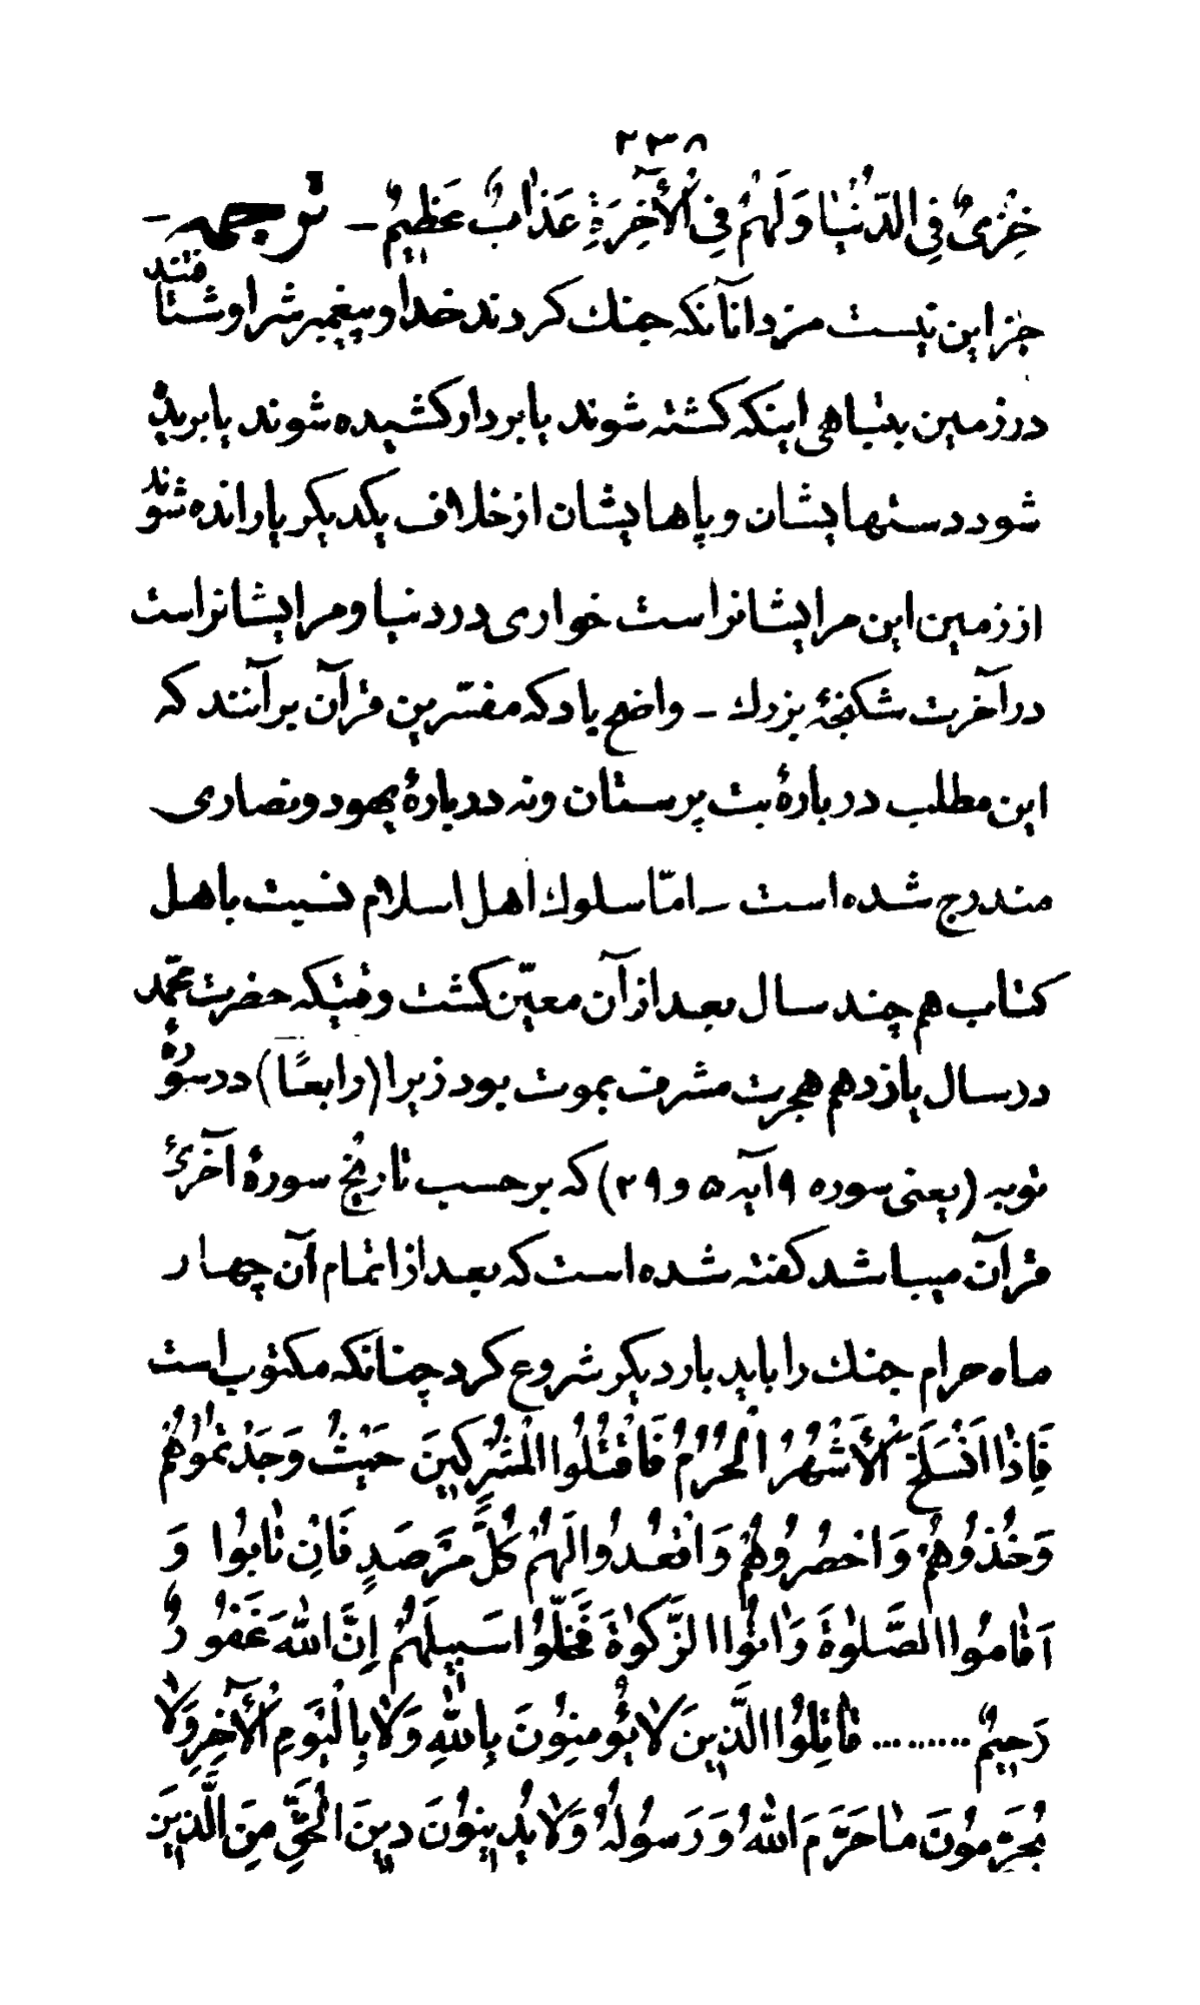 ٢٣٨
خِزْىٌ فِى الدُّنْيَا وَلَهُمْ فِى الْآَخِرَةِ عَذَابٌ عَظِيمٌ – ترجمه –
جز این نیست مزد انآنکه جنك کردند خدا و پیغمبرش را و شتافتند
در زمین بتباهی اینکه کشته شوند یا بردار کشیده شوند یا بریده
شود دستهایشان و پاهایشان از خلاف یکدیکر یا رانده شوند
از زمین این مرایشانراست خواری در دنیا و مرایشانراست
در آخرت شکنجهٔ بزرك – واضح باد که مفسّرین قرآن برآنند که
این مطلب دربارهٔ بت پرستان ونه دربارهٔ یهود و نصاری
مندرج شده است – امّا سلوك اهل اسلام نسبت باهل
کتاب هم چند سال بعد از آن معیّن کشت وقتیکه حضرت محمّد
در سال یازدهم هجرت مشرف بموت بود زیرا (رابعًا) در سورهٔ
توبه (یعنی سوره ٩ آیه ۵ و ٢٩) که برحسب تاریخ سورهٔ آخریٔ
قرآن میباشد کفته شده است که بعد از اتمام آن چهار
ماه حرام جنك را باید بار دیکر شروع کرد چنانکه مکتوب است
فَاِذَا انْسَلَخَ الْأَشْهُرُ الْحُرُمُ فَاقْتُلُوا الْمُشْرِكِينَ حَيْثُ وَجَدْتُمُوهُمْ
وَخُذُوهُمْ وَاحْصُرُوهُمْ وَاقْعُدُوا لَهُمْ كُلَّ مَرْصَدٍ فَاِنْ تَابُوا وَ
اَقَامُوا الصَّلٰوةَ وَاٰتَوُا الزَّكٰوةَ فَخَلُّوا سَبِيلَهُمْ اِنَّ اللّٰهَ غَفُورٌ
رَحِيمٌ ......... قَاتِلُوا الَّذِينَ لَا يُؤْمِنُونَ بِاللّٰهِ وَلَا بِالْيَوْمِ الْآَخِرِ وَلَا
يُحَرِّمُونَ مَا حَرَّمَ اللّٰهُ وَرَسُولُهُ وَلَا يُدِينُونَ دِينَ الْحَقِّ مِنَ الَّذِينَ